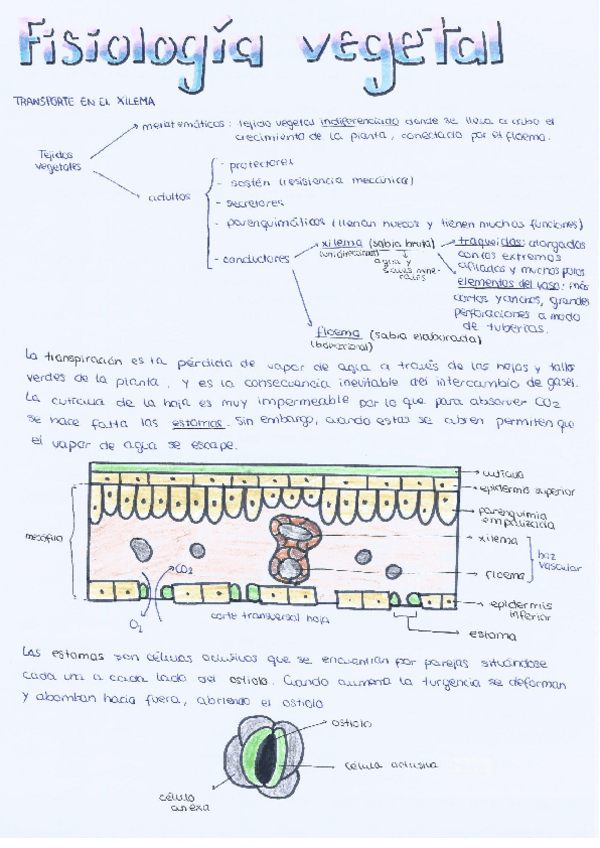 Fisiología vegetal
TRANSPORTE EN EL XILEMA
meristemáticos: tejido vegetal indiferenciado donde se lleva a cabo el
crecimiento de la planta, conectado por el floema.
Tejidos
vegetales
adultos
- protectores
- sostén (resistencia mecánica)
- secretores
- parenquimáticos (llenan huecos y tienen muchas funciones)
- conductores
xilema (sabia bruta)
(unidireccional)
agua y
sales mine-
rales
traqueidas: alargadas
con los extremos
afilados y muchos poros
elementos del vaso: más
cortos y anchos, grandes
perforaciones a modo
de tuberías.
floema (sabia elaborada)
(bidireccional)
La transpiración es la pérdida de vapor de agua a través de las hojas y tallos
verdes de la planta, y es la consecuencia inevitable del intercambio de gases.
La cutícula de la hoja es muy impermeable por lo que para absorver CO2
se hace falta las estomas. Sin embargo, cuando estas se abren permiten que
el vapor de agua se escape.
cutícula
epidermis superior
parenquimia
empalizada
mesófilo
xilema
haz
vascular
floema
CO2
O2
corte transversal hoja
epidermis
inferior
estoma
Las estomas son células oclusivas que se encuentran por parejas situándose
cada una a cada lado del ostiolo. Cuando aumenta la turgencia se deforman
y abomban hacia fuera, abriendo el ostiolo
ostiolo
célula oclusiva
célula
anexa